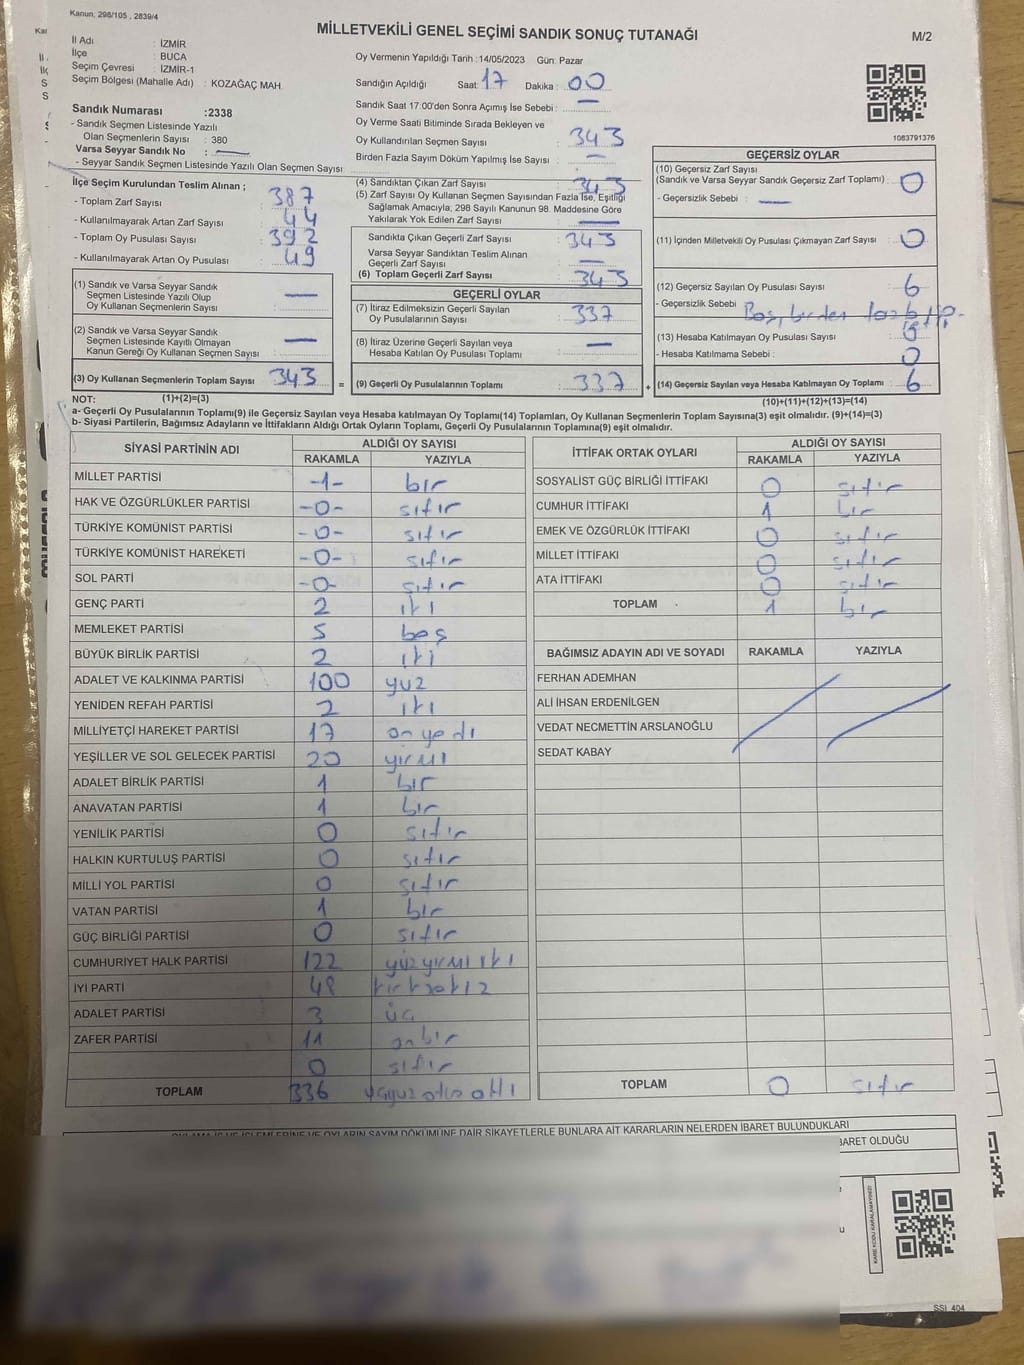 Kanun, 298/105 , 2839/4
MİLLETVEKİLİ GENEL SEÇİMİ SANDIK SONUÇ TUTANAĞI
M/2
İl Adı : İZMİR
İlçe : BUCA
Seçim Çevresi : İZMİR-1
Seçim Bölgesi (Mahalle Adı) : KOZAĞAÇ MAH.
Sandık Numarası :2338
- Sandık Seçmen Listesinde Yazılı
Olan Seçmenlerin Sayısı : 380
Varsa Seyyar Sandık No : —
- Seyyar Sandık Seçmen Listesinde Yazılı Olan Seçmen Sayısı :
Oy Vermenin Yapıldığı Tarih :14/05/2023 Gün: Pazar
Sandığın Açıldığı Saat: 17 Dakika : 00
Sandık Saat 17:00'den Sonra Açımış İse Sebebi : —
Oy Verme Saati Bitiminde Sırada Bekleyen ve
Oy Kullandırılan Seçmen Sayısı 343
Birden Fazla Sayım Döküm Yapılmış İse Sayısı : —
1083791376
İlçe Seçim Kurulundan Teslim Alınan ;
- Toplam Zarf Sayısı : 387
- Kullanılmayarak Artan Zarf Sayısı : 44
- Toplam Oy Pusulası Sayısı : 392
- Kullanılmayarak Artan Oy Pusulası : 49
(1) Sandık ve Varsa Seyyar Sandık
Seçmen Listesinde Yazılı Olup
Oy Kullanan Seçmenlerin Sayısı : —
(2) Sandık ve Varsa Seyyar Sandık
Seçmen Listesinde Kayıtlı Olmayan
Kanun Gereği Oy Kullanan Seçmen Sayısı : —
(3) Oy Kullanan Seçmenlerin Toplam Sayısı : 343 =
(4) Sandıktan Çıkan Zarf Sayısı : 343
(5) Zarf Sayısı Oy Kullanan Seçmen Sayısından Fazla İse, Eşitliği
Sağlamak Amacıyla, 298 Sayılı Kanunun 98. Maddesine Göre
Yakılarak Yok Edilen Zarf Sayısı : —
Sandıkta Çıkan Geçerli Zarf Sayısı : 343
Varsa Seyyar Sandıktan Teslim Alınan
Geçerli Zarf Sayısı : —
(6) Toplam Geçerli Zarf Sayısı : 343
GEÇERLİ OYLAR
(7) İtiraz Edilmeksizin Geçerli Sayılan
Oy Pusulalarının Sayısı : 337
(8) İtiraz Üzerine Geçerli Sayılan veya
Hesaba Katılan Oy Pusulası Toplamı : —
(9) Geçerli Oy Pusulalarının Toplamı : 337 +
GEÇERSİZ OYLAR
(10) Geçersiz Zarf Sayısı
(Sandık ve Varsa Seyyar Sandık Geçersiz Zarf Toplamı) : 0
- Geçersizlik Sebebi : —
(11) İçinden Milletvekili Oy Pusulası Çıkmayan Zarf Sayısı : 0
(12) Geçersiz Sayılan Oy Pusulası Sayısı : 6
- Geçersizlik Sebebi : Boş, birden
(13) Hesaba Katılmayan Oy Pusulası Sayısı : 0
- Hesaba Katılmama Sebebi : 0
(14) Geçersiz Sayılan veya Hesaba Katılmayan Oy Toplamı : 6
NOT: (1)+(2)=(3) (10)+(11)+(12)+(13)=(14)
a- Geçerli Oy Pusulalarının Toplamı(9) ile Geçersiz Sayılan veya Hesaba katılmayan Oy Toplamı(14) Toplamları, Oy Kullanan Seçmenlerin Toplam Sayısına(3) eşit olmalıdır. (9)+(14)=(3)
b- Siyasi Partilerin, Bağımsız Adayların ve İttifakların Aldığı Ortak Oyların Toplamı, Geçerli Oy Pusulalarının Toplamına(9) eşit olmalıdır.
SİYASİ PARTİNİN ADI ALDIĞI OY SAYISI
RAKAMLA YAZIYLA
MİLLET PARTİSİ -1- bir
HAK VE ÖZGÜRLÜKLER PARTİSİ -0- sıfır
TÜRKİYE KOMÜNİST PARTİSİ -0- sıfır
TÜRKİYE KOMÜNİST HAREKETİ -0- sıfır
SOL PARTİ -0- sıfır
GENÇ PARTİ 2 iki
MEMLEKET PARTİSİ 5 beş
BÜYÜK BİRLİK PARTİSİ 2 iki
ADALET VE KALKINMA PARTİSİ 100 yüz
YENİDEN REFAH PARTİSİ 2 iki
MİLLİYETÇİ HAREKET PARTİSİ 17 on yedi
YEŞİLLER VE SOL GELECEK PARTİSİ 20 yirmi
ADALET BİRLİK PARTİSİ 1 bir
ANAVATAN PARTİSİ 1 bir
YENİLİK PARTİSİ 0 sıfır
HALKIN KURTULUŞ PARTİSİ 0 sıfır
MİLLİ YOL PARTİSİ 0 sıfır
VATAN PARTİSİ 1 bir
GÜÇ BİRLİĞİ PARTİSİ 0 sıfır
CUMHURİYET HALK PARTİSİ 122 yüz yirmi iki
İYİ PARTİ 48 kırk sekiz
ADALET PARTİSİ 3 üç
ZAFER PARTİSİ 11 on bir
0 sıfır
TOPLAM 336 üçyüz otuz altı
İTTİFAK ORTAK OYLARI ALDIĞI OY SAYISI
RAKAMLA YAZIYLA
SOSYALİST GÜÇ BİRLİĞİ İTTİFAKI 0 sıfır
CUMHUR İTTİFAKI 1 bir
EMEK VE ÖZGÜRLÜK İTTİFAKI 0 sıfır
MİLLET İTTİFAKI 0 sıfır
ATA İTTİFAKI 0 sıfır
TOPLAM 1 bir
BAĞIMSIZ ADAYIN ADI VE SOYADI RAKAMLA YAZIYLA
FERHAN ADEMHAN
ALİ İHSAN ERDENİLGEN
VEDAT NECMETTİN ARSLANOĞLU
SEDAT KABAY
TOPLAM 0 sıfır
OYLAMA İŞ VE İŞLEMLERİNE VE OYLARIN SAYIM DÖKÜMÜNE DAİR ŞİKAYETLERLE BUNLARA AİT KARARLARIN NELERDEN İBARET BULUNDUKLARI
BARET OLDUĞU
KARE KODU KARALAMAYINIZ!
SSI_404